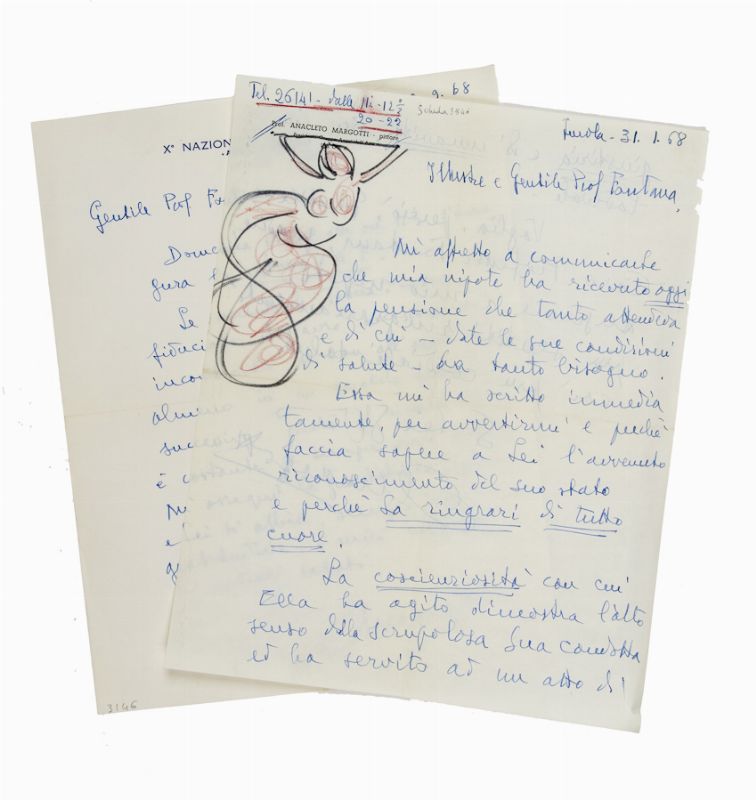 Tel. 26141 - dalle 11 - 12½
20 - 22
Prof. ANACLETO MARGOTTI - pittore
Imola - 31.1.68
Illustre e Gentile Prof Fontana,
Mi affretto a communicarle
che mia nipote ha ricevuto oggi
la pensione che tanto attendeva
e di cui - date le sue condizioni
di salute - ha tanto bisogno.
Essa mi ha scritto immedia
tamente, per avvertirmi e perchè
faccia sapere a Lei l'avvenuto
riconoscimento del suo stato
e perchè La ringrazi di tutto
cuore.
La coscienziosità con cui
Ella ha agito dimostra l'alto
senso della scrupolosa Sua condotta
ed ha servito ad un atto di
9.68
X° NAZION
Gentile Prof F
Dome
gura
Le
fiduci
incon
almeno
è
Mi
e
3146